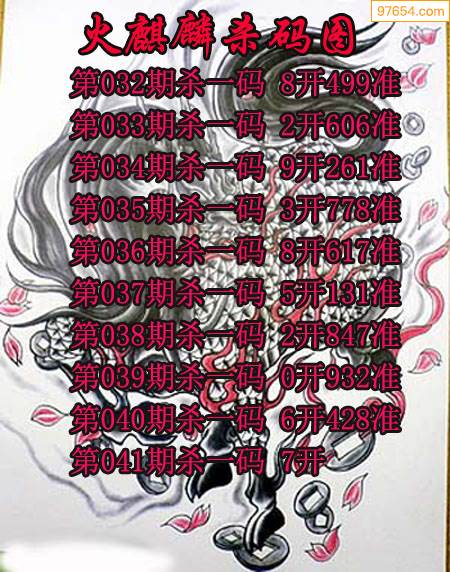 97654.com
火麒麟杀码图
第032期杀一码 8开499准
第033期杀一码 2开606准
第034期杀一码 9开261准
第035期杀一码 3开778准
第036期杀一码 8开617准
第037期杀一码 5开131准
第038期杀一码 2开847准
第039期杀一码 0开932准
第040期杀一码 6开428准
第041期杀一码 7开